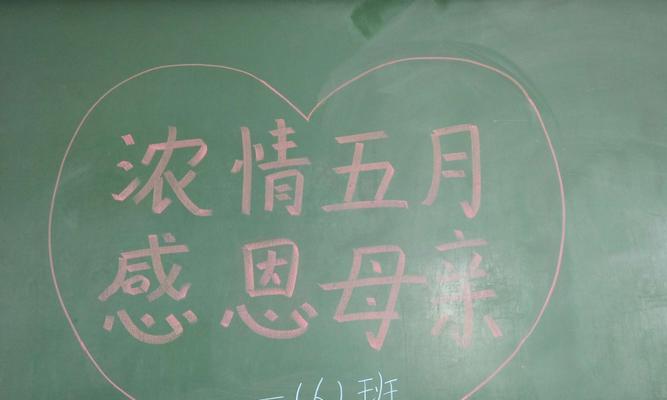 浓情五月
感恩母亲
(6)班